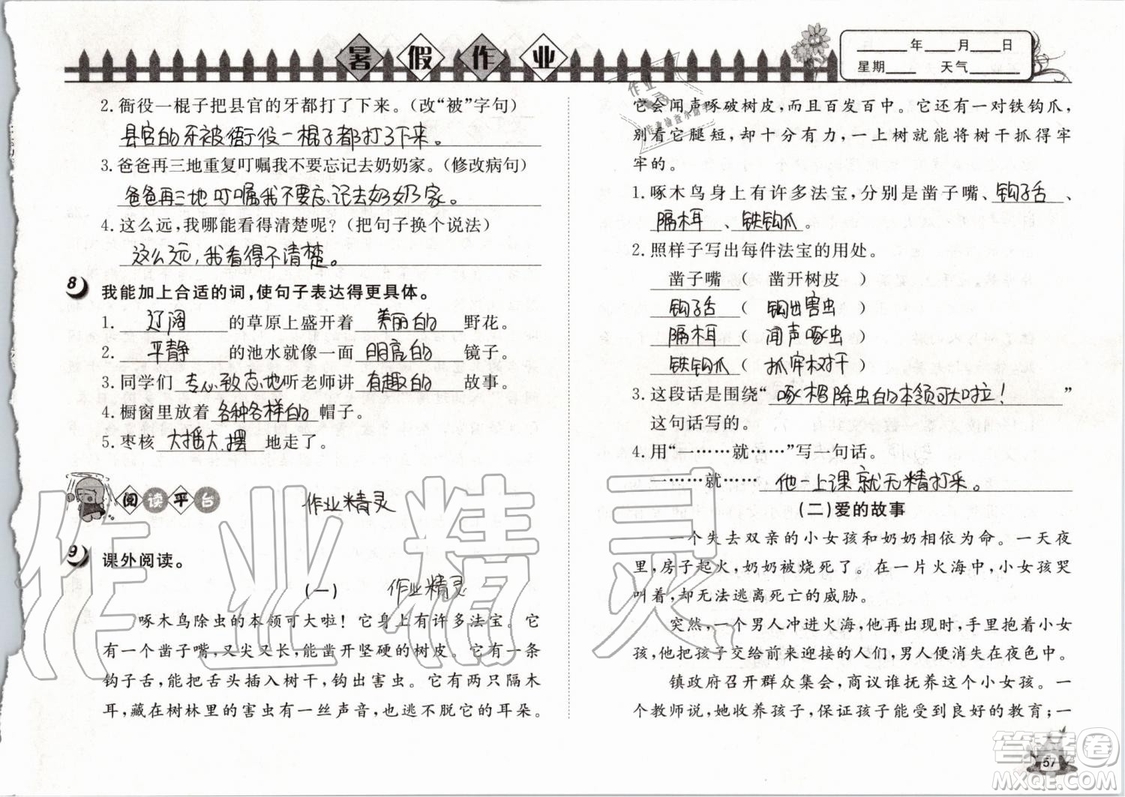 暑假作业
____年____月____日
星期____ 天气____
2. 衙役一棍子把县官的牙都打了下来。(改“被”字句)
县官的牙被衙役一棍子都打了下来。
3. 爸爸再三地重复叮嘱我不要忘记去奶奶家。(修改病句)
爸爸再三地叮嘱我不要忘记去奶奶家。
4. 这么远,我哪能看得清楚呢?(把句子换个说法)
这么远,我看得不清楚。
8 我能加上合适的词,使句子表达得更具体。
1. 辽阔的草原上盛开着美丽的野花。
2. 平静的池水就像一面明亮的镜子。
3. 同学们专心致志地听老师讲有趣的故事。
4. 橱窗里放着各种各样的帽子。
5. 枣核大摇大摆地走了。
阅读平台
作业精灵
9 课外阅读。
(一) 作业精灵
啄木鸟除虫的本领可大啦!它身上有许多法宝。它
有一个凿子嘴,又尖又长,能凿开坚硬的树皮。它有一条
钩子舌,能把舌头插入树干,钩出害虫。它有两只隔木
耳,藏在树林里的害虫有一丝声音,也逃不过它的耳朵。
它会闻声啄破树皮,而且百发百中。它还有一对铁钩爪,
别看它腿短,却十分有力,一上树就能将树干抓得牢
牢的。
1. 啄木鸟身上有许多法宝,分别是凿子嘴、钩子舌、
隔木耳、铁钩爪。
2. 照样子写出每件法宝的用处。
凿子嘴(凿开树皮)
钩子舌(钩出害虫)
隔木耳(闻声啄虫)
铁钩爪(抓牢树干)
3. 这段话是围绕“啄木鸟除虫的本领可大啦!”
这句话写的。
4. 用“一……就……”写一句话。
一……就……他一上课就无精打采。
(二)爱的故事
一个失去双亲的小女孩和奶奶相依为命。一天夜
里,房子起火,奶奶被烧死了。在一片火海中,小女孩哭
叫着,却无法逃离死亡的威胁。
突然,一个男人冲进火海,再出现时,手里抱着小女
孩,他把孩子交给前来迎接的人们,又消失在夜色中。
镇政府召开群众集会,商议谁抚养这个小女孩。一
个教师说,她收养孩子,保证孩子能受到良好的教育;一
57
作业精灵
答案卷
MXQE.COM